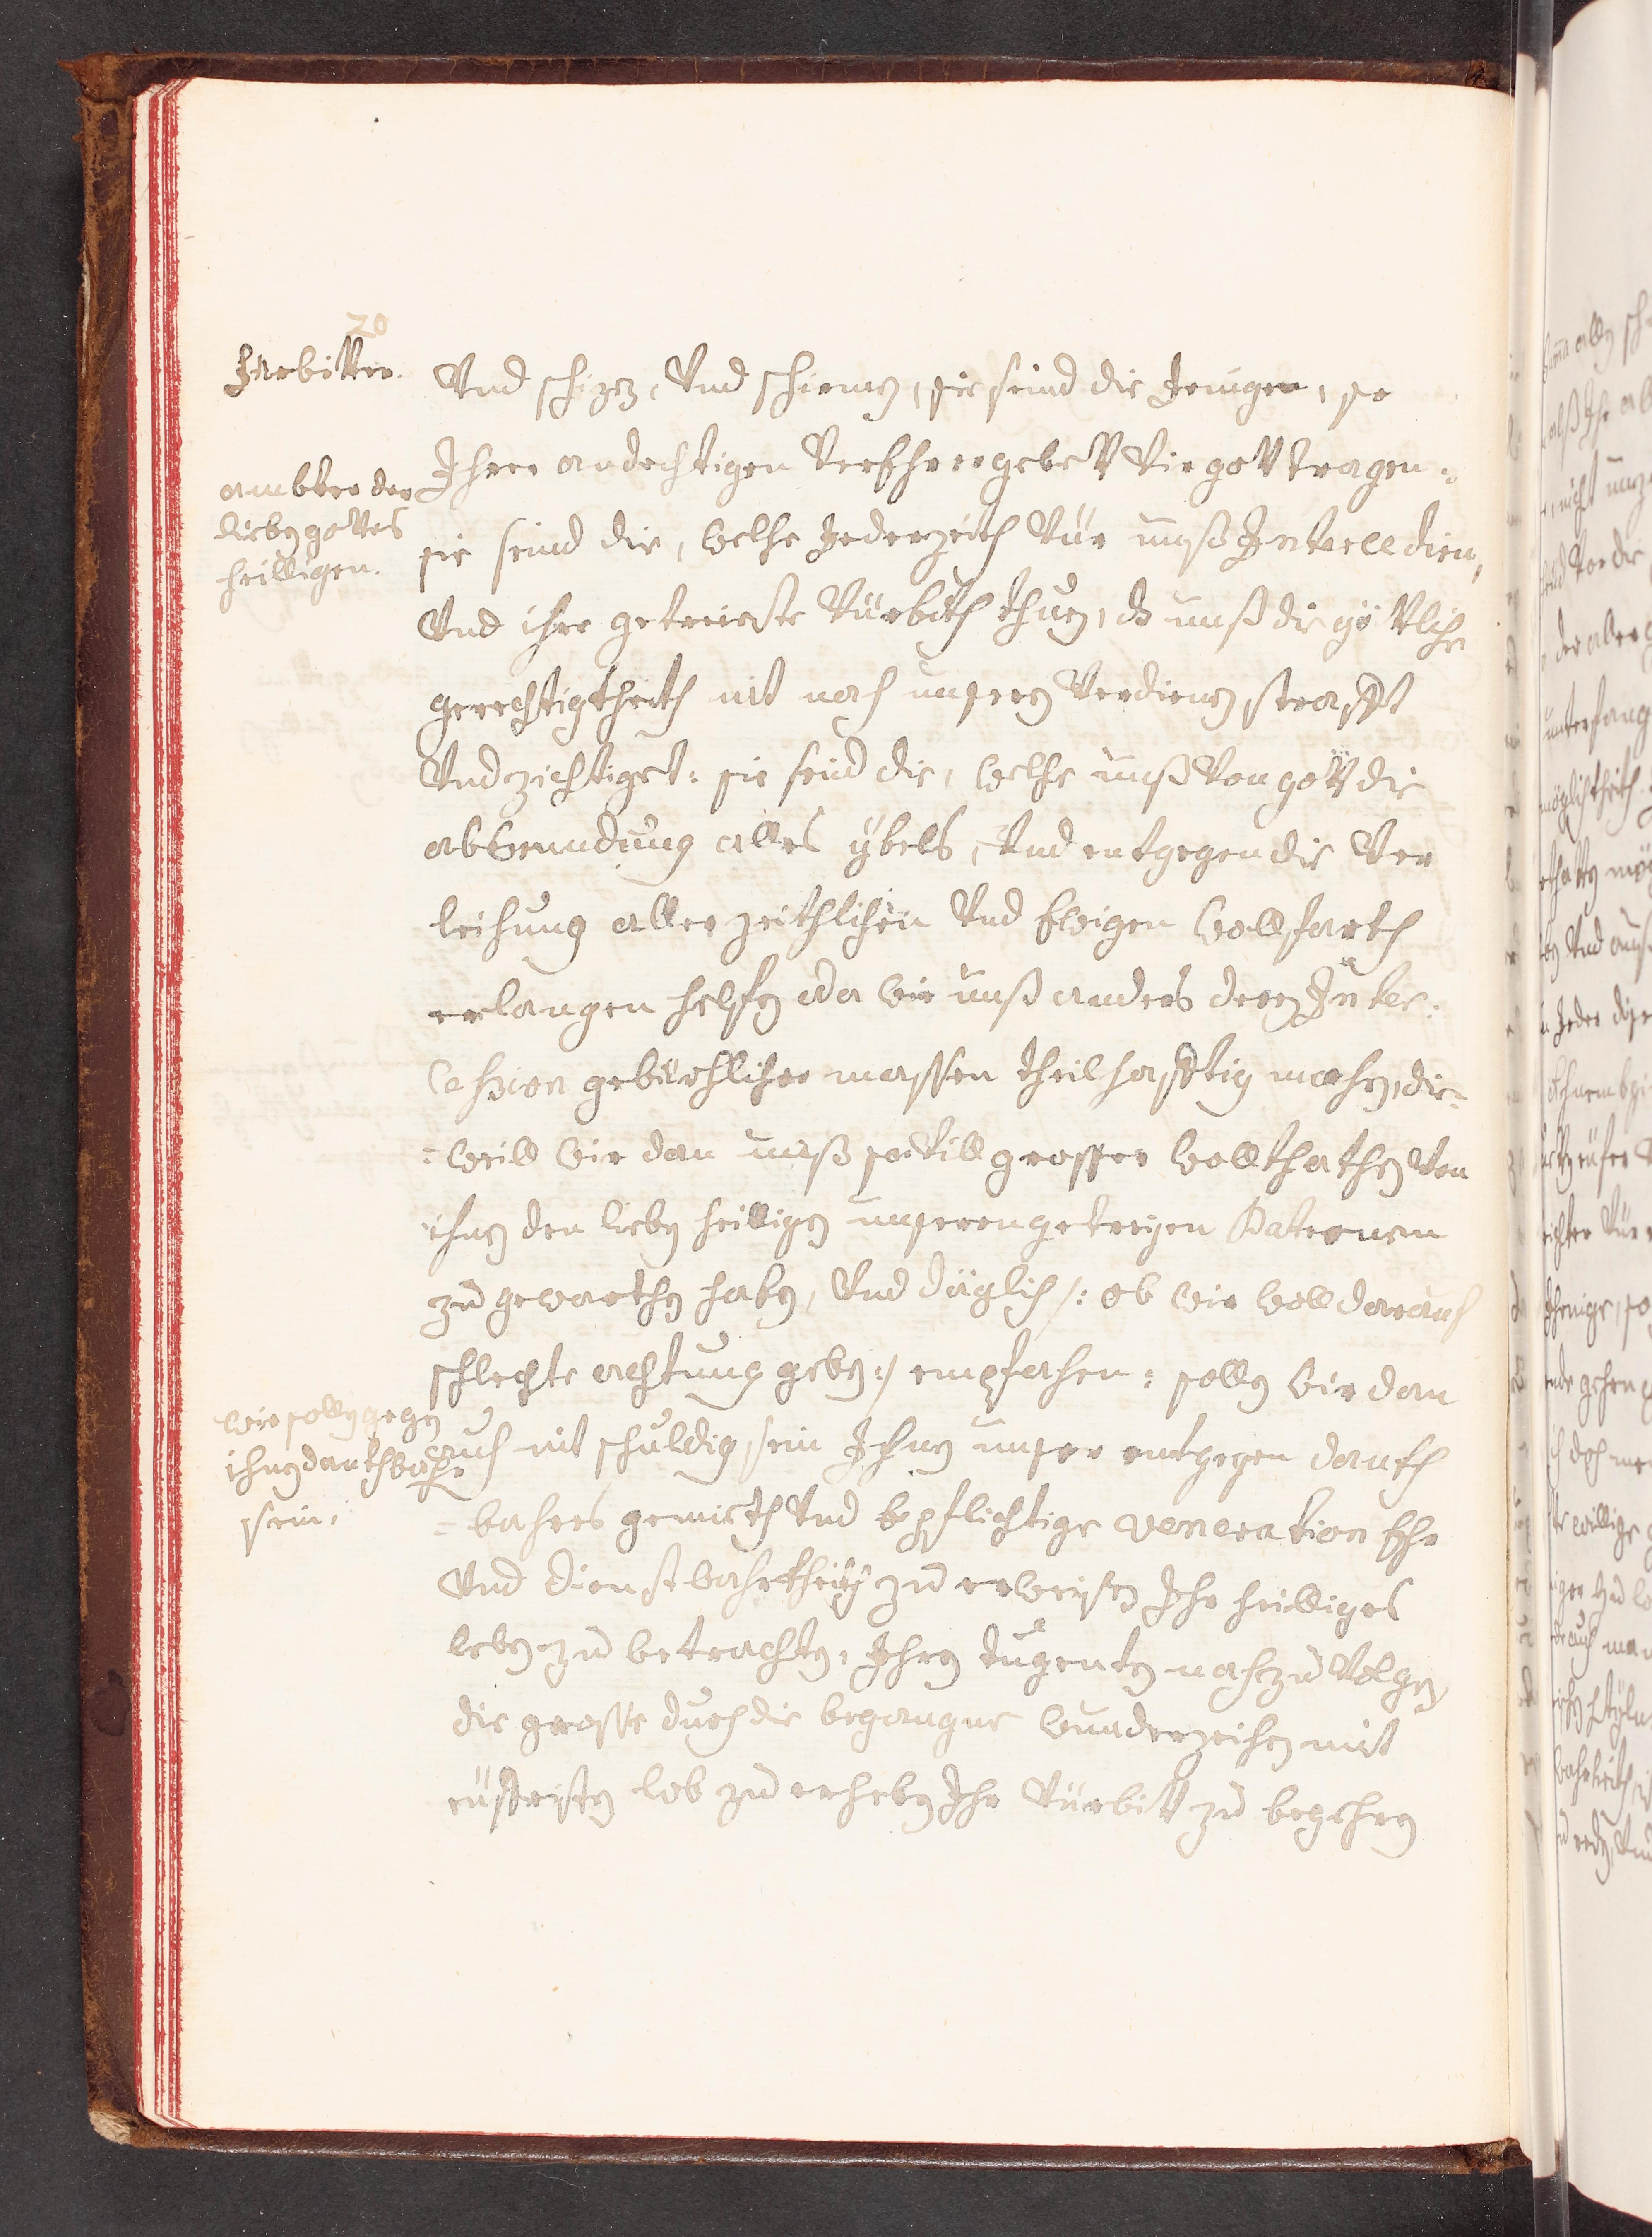 20
Fürbitter.
Vnd schizen, Vnd schirmen, sie seind die Jenigen, so
Ihrer andechtigen Verehrer gebett Vir gott tragen:
ambter der
lieben gottes
heilligen.
sie seind die, welche Jederzeith Vür unß Intercedirn,
Vnd ihre getreieste Vürbith thuen, dz unß die göttliche
gerechtigkheith nit nach unseren Verdienen strafft
Vnd zichtiget: sie seind die, welche unß Von gott die
abwendung alles ybels, Vnd entgegen die Ver
leihung aller zeithlichen Vnd Ewigen wollfarth
erlangen helfen da wir unß anders deren Inter:
cession gebürlicher massen theilhafftig machen, die=
=weill wir dan unß so Vill grosser wollthathen Von
ihnen den lieben heilligen unseren getreyen Patronen
zu gewarthen haben, Vnd däglich /: ob wir woll darauf
schlechte achtung geben :/ empfahen: sollen wir dan
wir sollen gegen
ihnen dankhbahr
sein.
auch nit schuldig sein Ihnen unser entgegen dankh
=bahres gemieth Vnd bepflichtige veneration Ehr
Vnd dienstbahrkheith zu erweisen Ihr heilliges
leben zu betrachten, Ihren tugenten nachzu Volgen,
die grosse durch die begangne wunderzeichen mit
eüsseristen lob zu erheben Ihr Vürbitt zu begehren